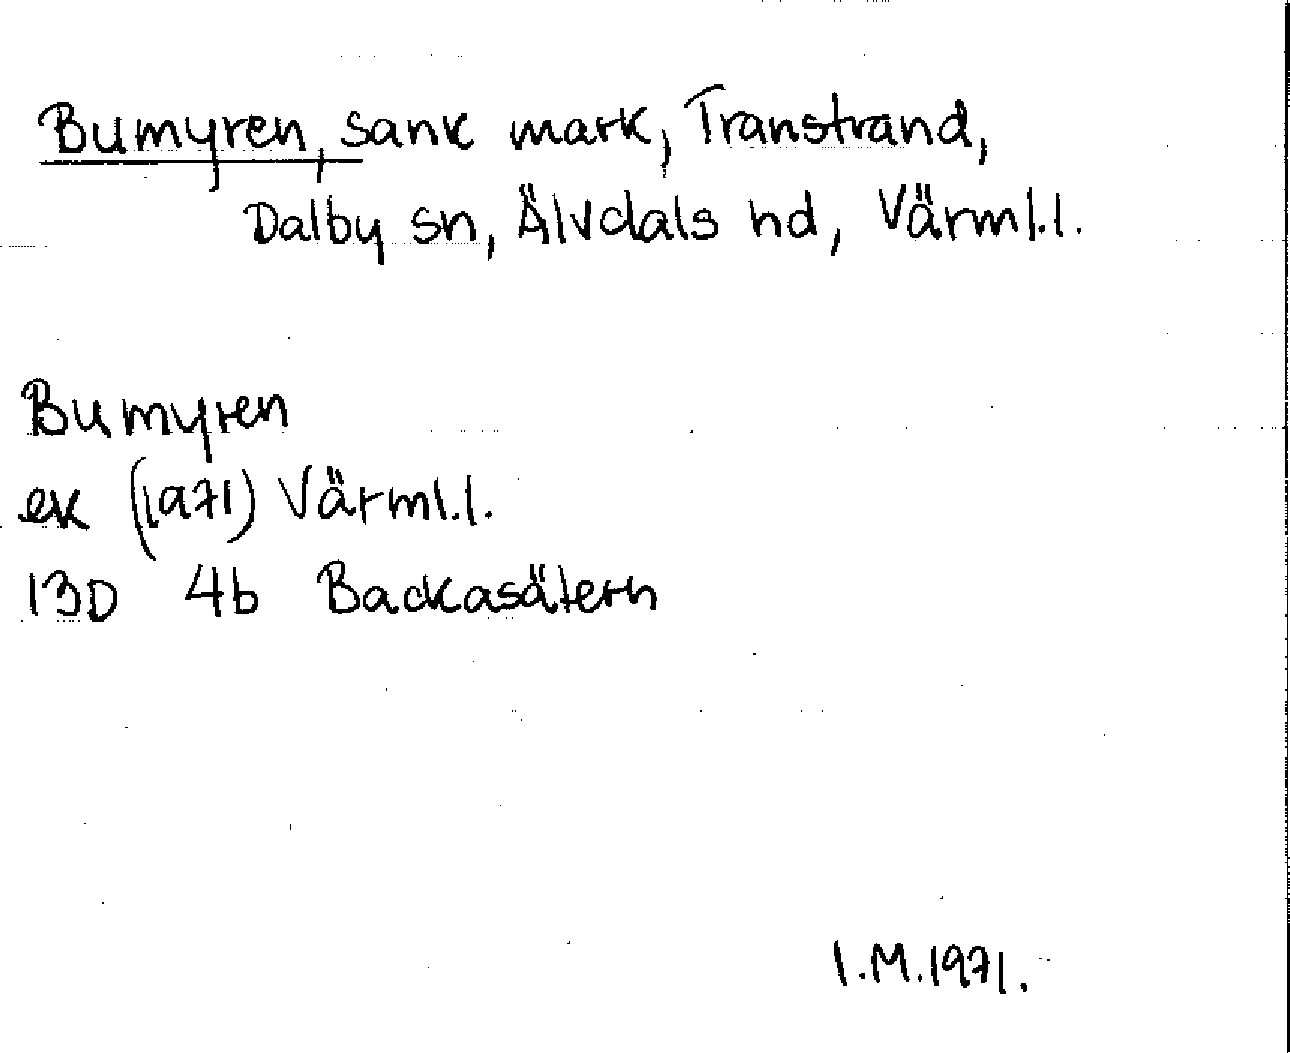 Bumyren, sank mark, Transtrand,
Dalby sn, Älvdals hd, Värml.l.
Bumyren
ek (1971) Värml.l.
13D 4b Backasätern
I.M.1971.